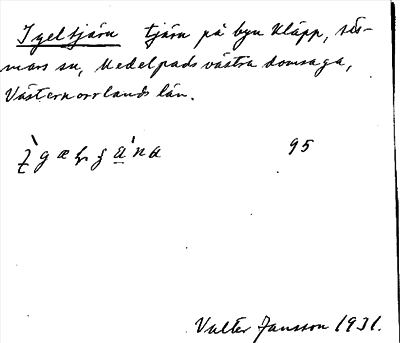 Igeltjärn tjärn på byn Kläpp,
mars sn, Medelpads västra domsaga,
Västernorrlands län.
95
Valter Jansson 1931.